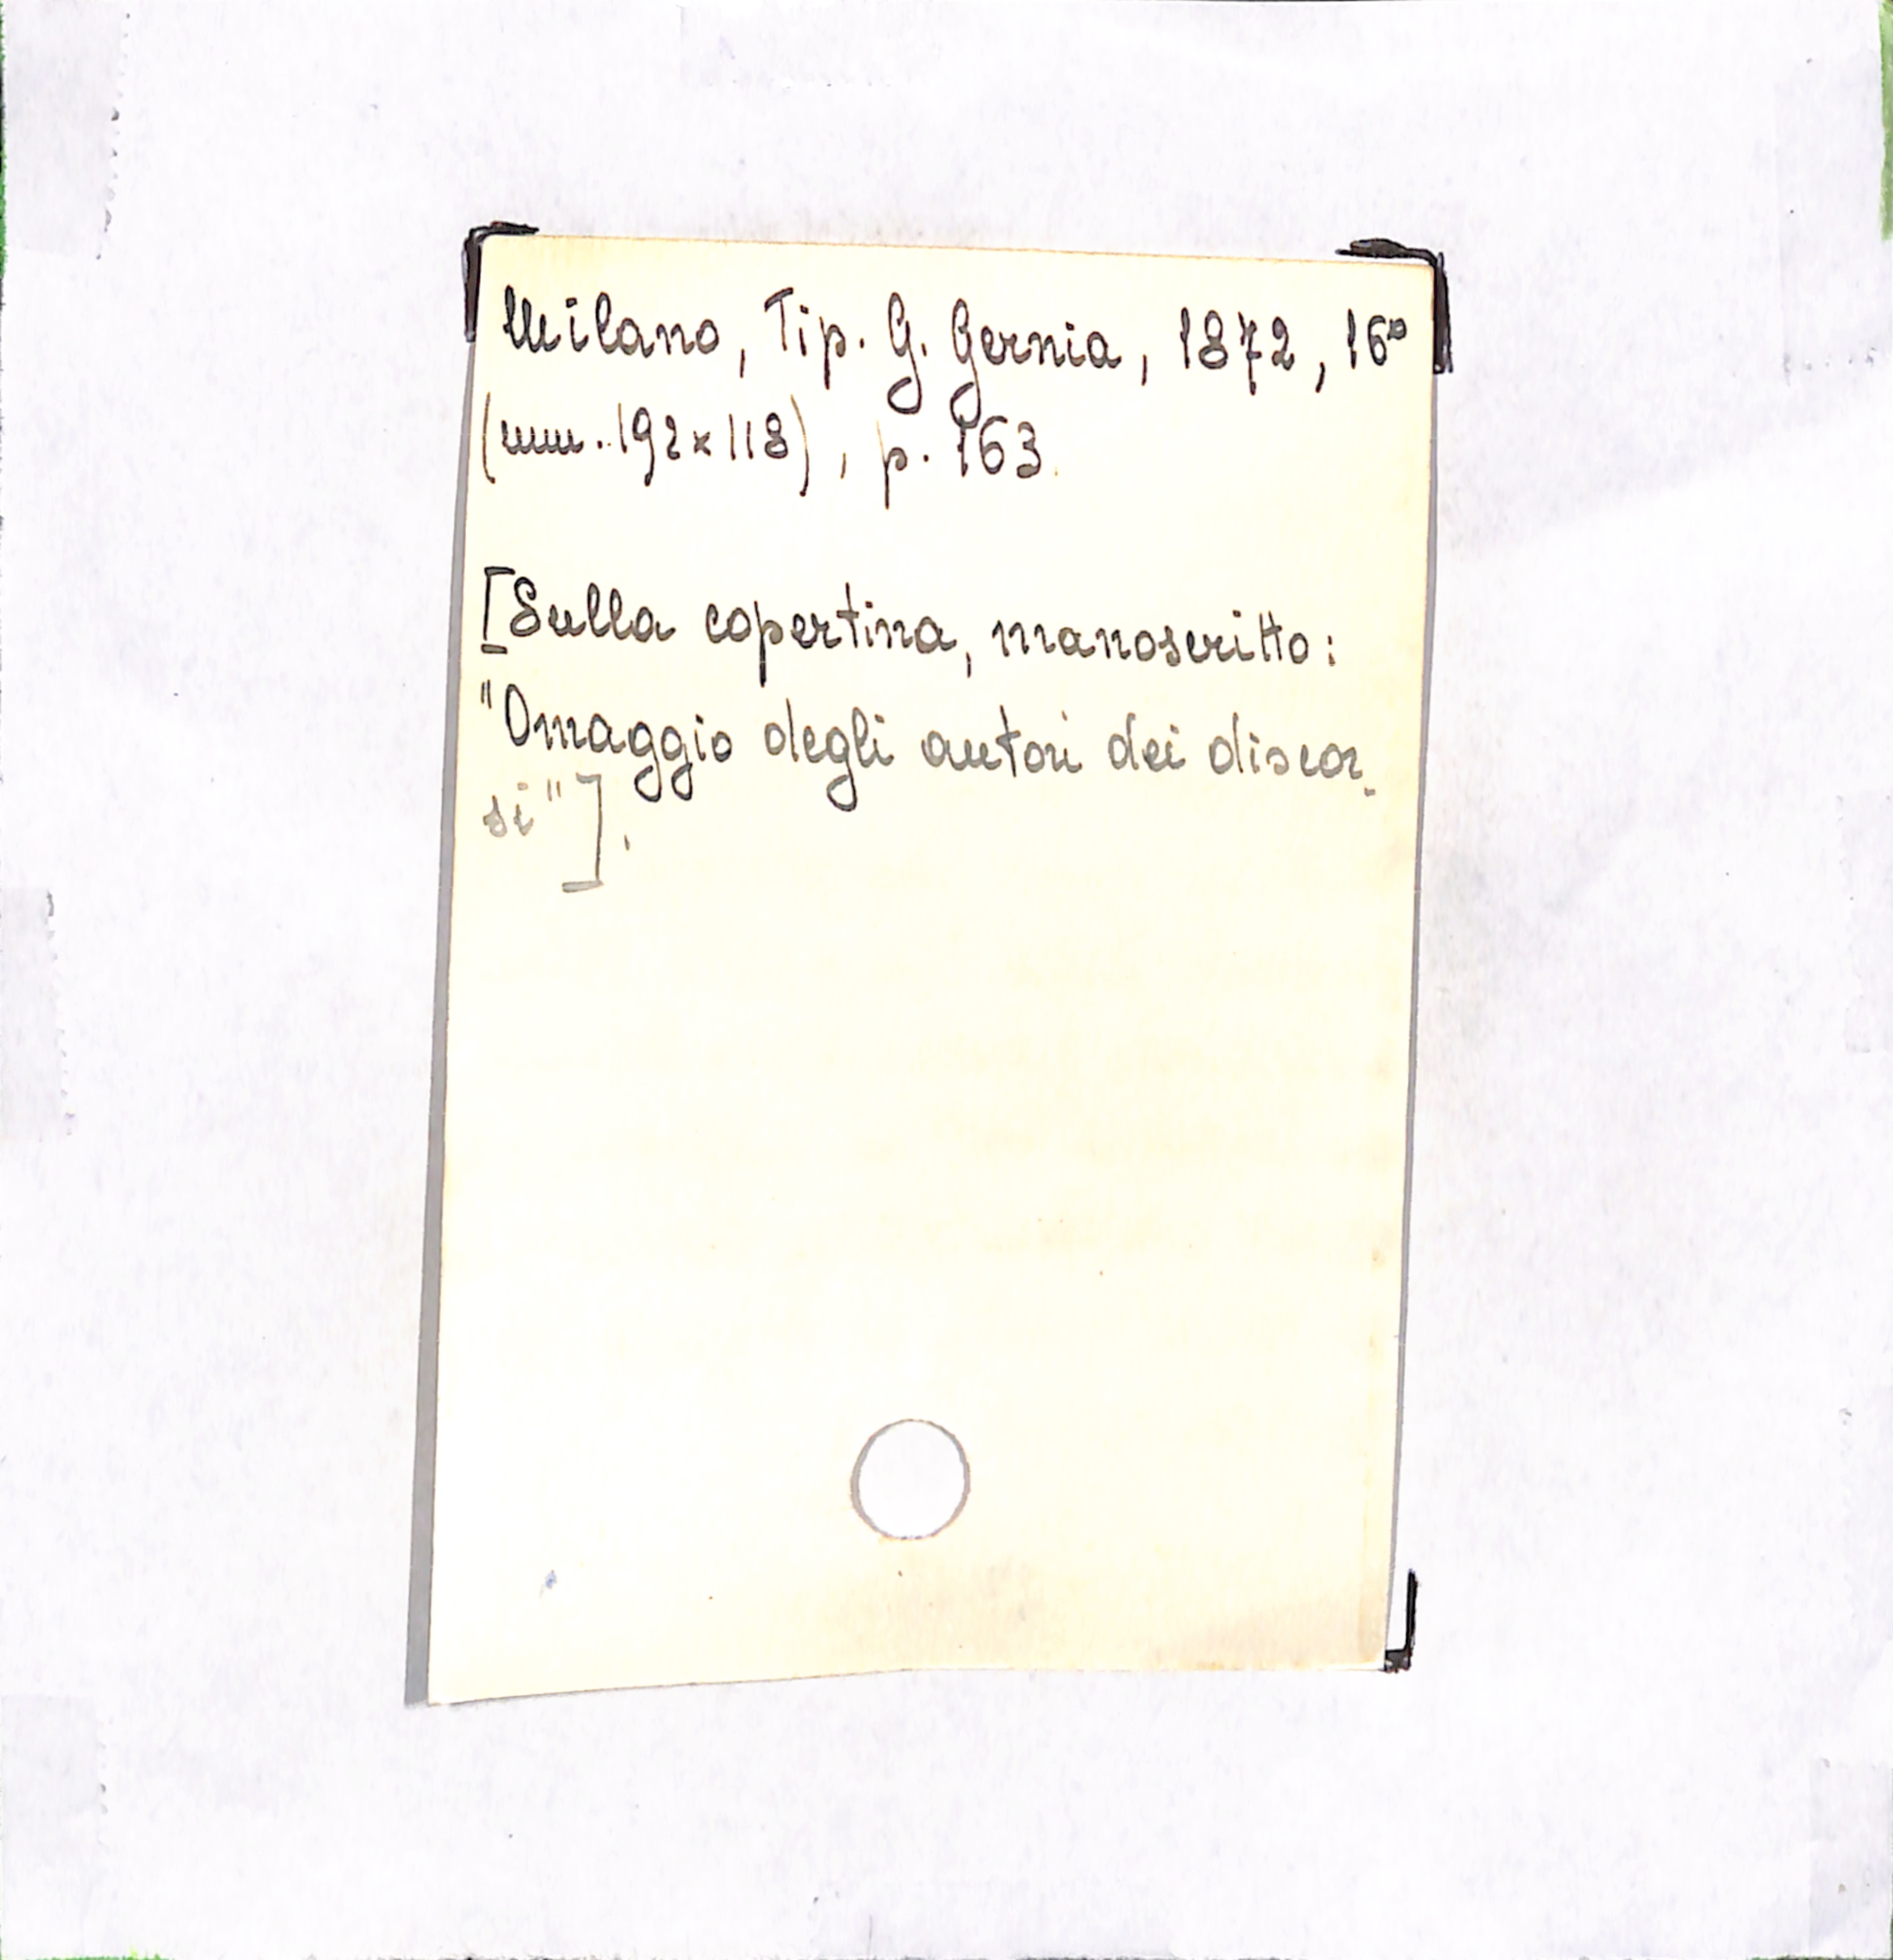 Milano, Tip. G. Gernia, 1872, 16°
(mm. 192x118), p. 163.
[Sulla copertina, manoscritto:
"Omaggio degli autori dei discor-
si"].